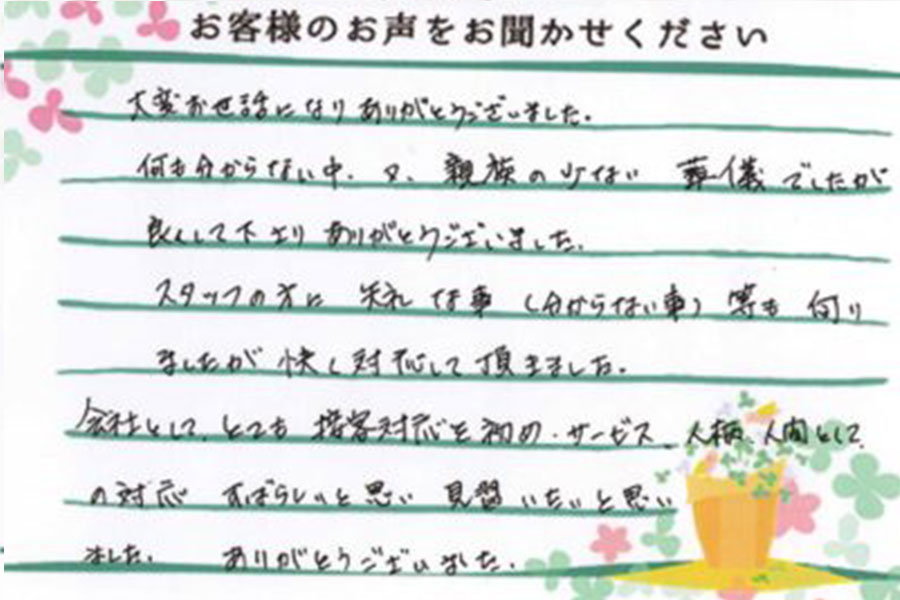 お客様のお声をお聞かせください
大変お世話になりありがとうございました。
何も分からない中、又、親族の少ない 葬儀でしたが
良くして下さり ありがとうございました。
スタッフの方に 失礼な事（分からない事）等も 伺い
ましたが 快く対応して頂きました。
会社として、とても 接客対応を初め、サービス、人柄、人間として
の対応 すばらしいと思い 見習いたいと思い
ました。 ありがとうございました。